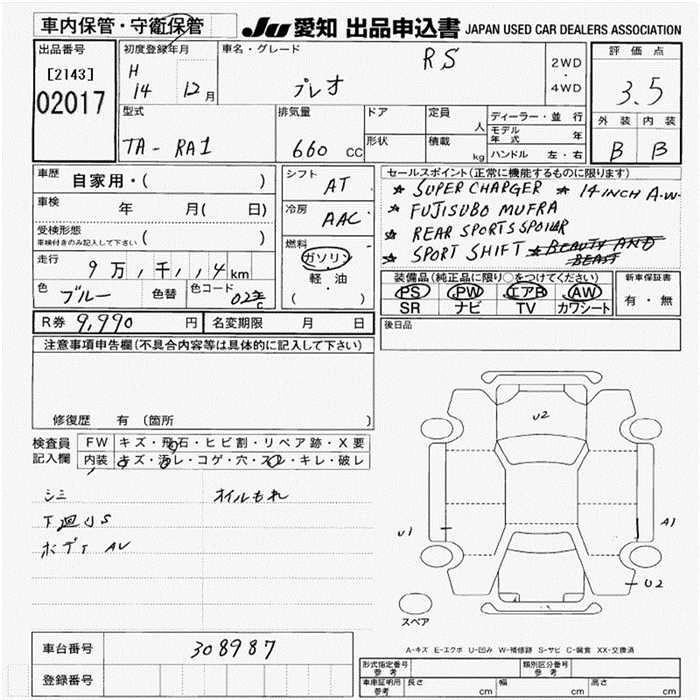 車内保管・守衛保管
JU 愛知 出品申込書 JAPAN USED CAR DEALERS ASSOCIATION
出品番号 [2143] 02017
初度登録年月 H 14 12月
車名・グレード プレオ RS
2WD・4WD
評価点 3.5
外装 内装 B B
型式 TA-RA1
排気量 660 CC
ドア
形状
定員 人
積載 kg
ディーラー・並行
モデル年式 年
ハンドル 左・右
車歴 自家用・( )
車検 年 月( 日)
受検形態 車検付きのみ記入して下さい ( )
走行 9万,千,,4km
色 ブルー 色替 色コード
R券 9,990 円 名変期限 月 日
シフト AT
冷房 AAC
燃料 ガソリン 軽・油 ( )
セールスポイント(正常に機能するものに限ります)
★ SUPER CHARGER ★ 14 INCH A.W.
★ FUJISUBO MUFRA
★ REAR SPORTS SPOILAR
★ SPORT SHIFT ★ BEAUTY AND BEAST
装備品(純正品に限り○をつけてください)
PS PW エアB AW
SR ナビ TV カワシート
新車保証書 有・無
後日品
注意事項申告欄(不具合内容等は具体的に記入して下さい)
修復歴 有 (箇所 )
検査員記入欄
FW キズ・飛石・ヒビ割・リペア跡・X要
内装 キズ・汚レ・コゲ・穴・スレ・キレ・破レ
シミ オイルもれ
下廻りS
ボディ AU
U2
U1
A1
U2
スペア
A-キズ E-エクボ U-凹み W-補修跡 S-サビ C-腐食 XX-交換済
車台番号 308987
登録番号
形式指定番号 参考
類別区分番号 参考
車庫証明用 参考 長さ cm 幅 cm 高さ cm